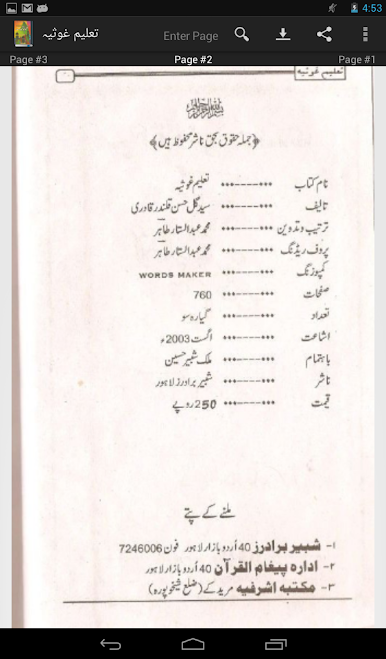 4:53
تعلیم غوثیہ Enter Page
Page #3 Page #2 Page #1
تعلیم غوثیہ
﴿جملہ حقوق بحق ناشر محفوظ ہیں﴾
نام کتاب ----- تعلیم غوثیہ
تالیف ----- سید گل حسن قلندر قادری
ترتیب و تدوین ----- محمد عبدالستار طاہر
پروف ریڈنگ ----- محمد عبدالستار طاہر
کمپوزنگ ----- WORDS MAKER
صفحات ----- 760
تعداد ----- گیارہ سو
اشاعت ----- اگست 2003ء
باہتمام ----- ملک شبیر حسین
ناشر ----- شبیر برادرز لاہور
قیمت ----- 250 روپے
ملنے کے پتے
۱- شبیر برادرز 40 اُردو بازار لاہور فون 7246006
۲- ادارہ پیغام القرآن 40 اُردو بازار لاہور
۳- مکتبہ اشرفیہ مریدکے (ضلع شیخوپورہ)